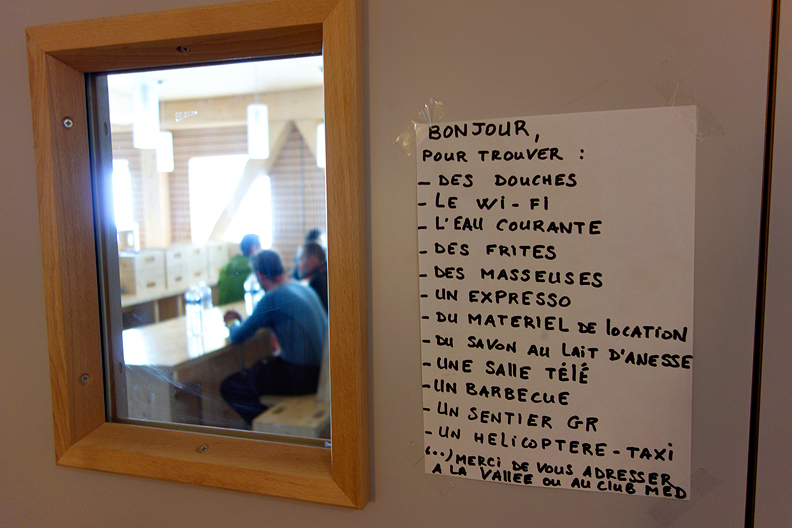 BONJOUR,
POUR TROUVER :
- DES DOUCHES
- LE WI-FI
- L'EAU COURANTE
- DES FRITES
- DES MASSEUSES
- UN EXPRESSO
- DU MATERIEL DE lOCATiON
- DU SAVON AU LAiT D'ANESSE
- UNE SAllE TÉlÉ
- UN BARBECUE
- UN SENTIER GR
- UN HELiCOPTERE-TAXi
(..) MERCi DE VOUS ADRESSER
A LA VALLÉE OU AU ClUB MED